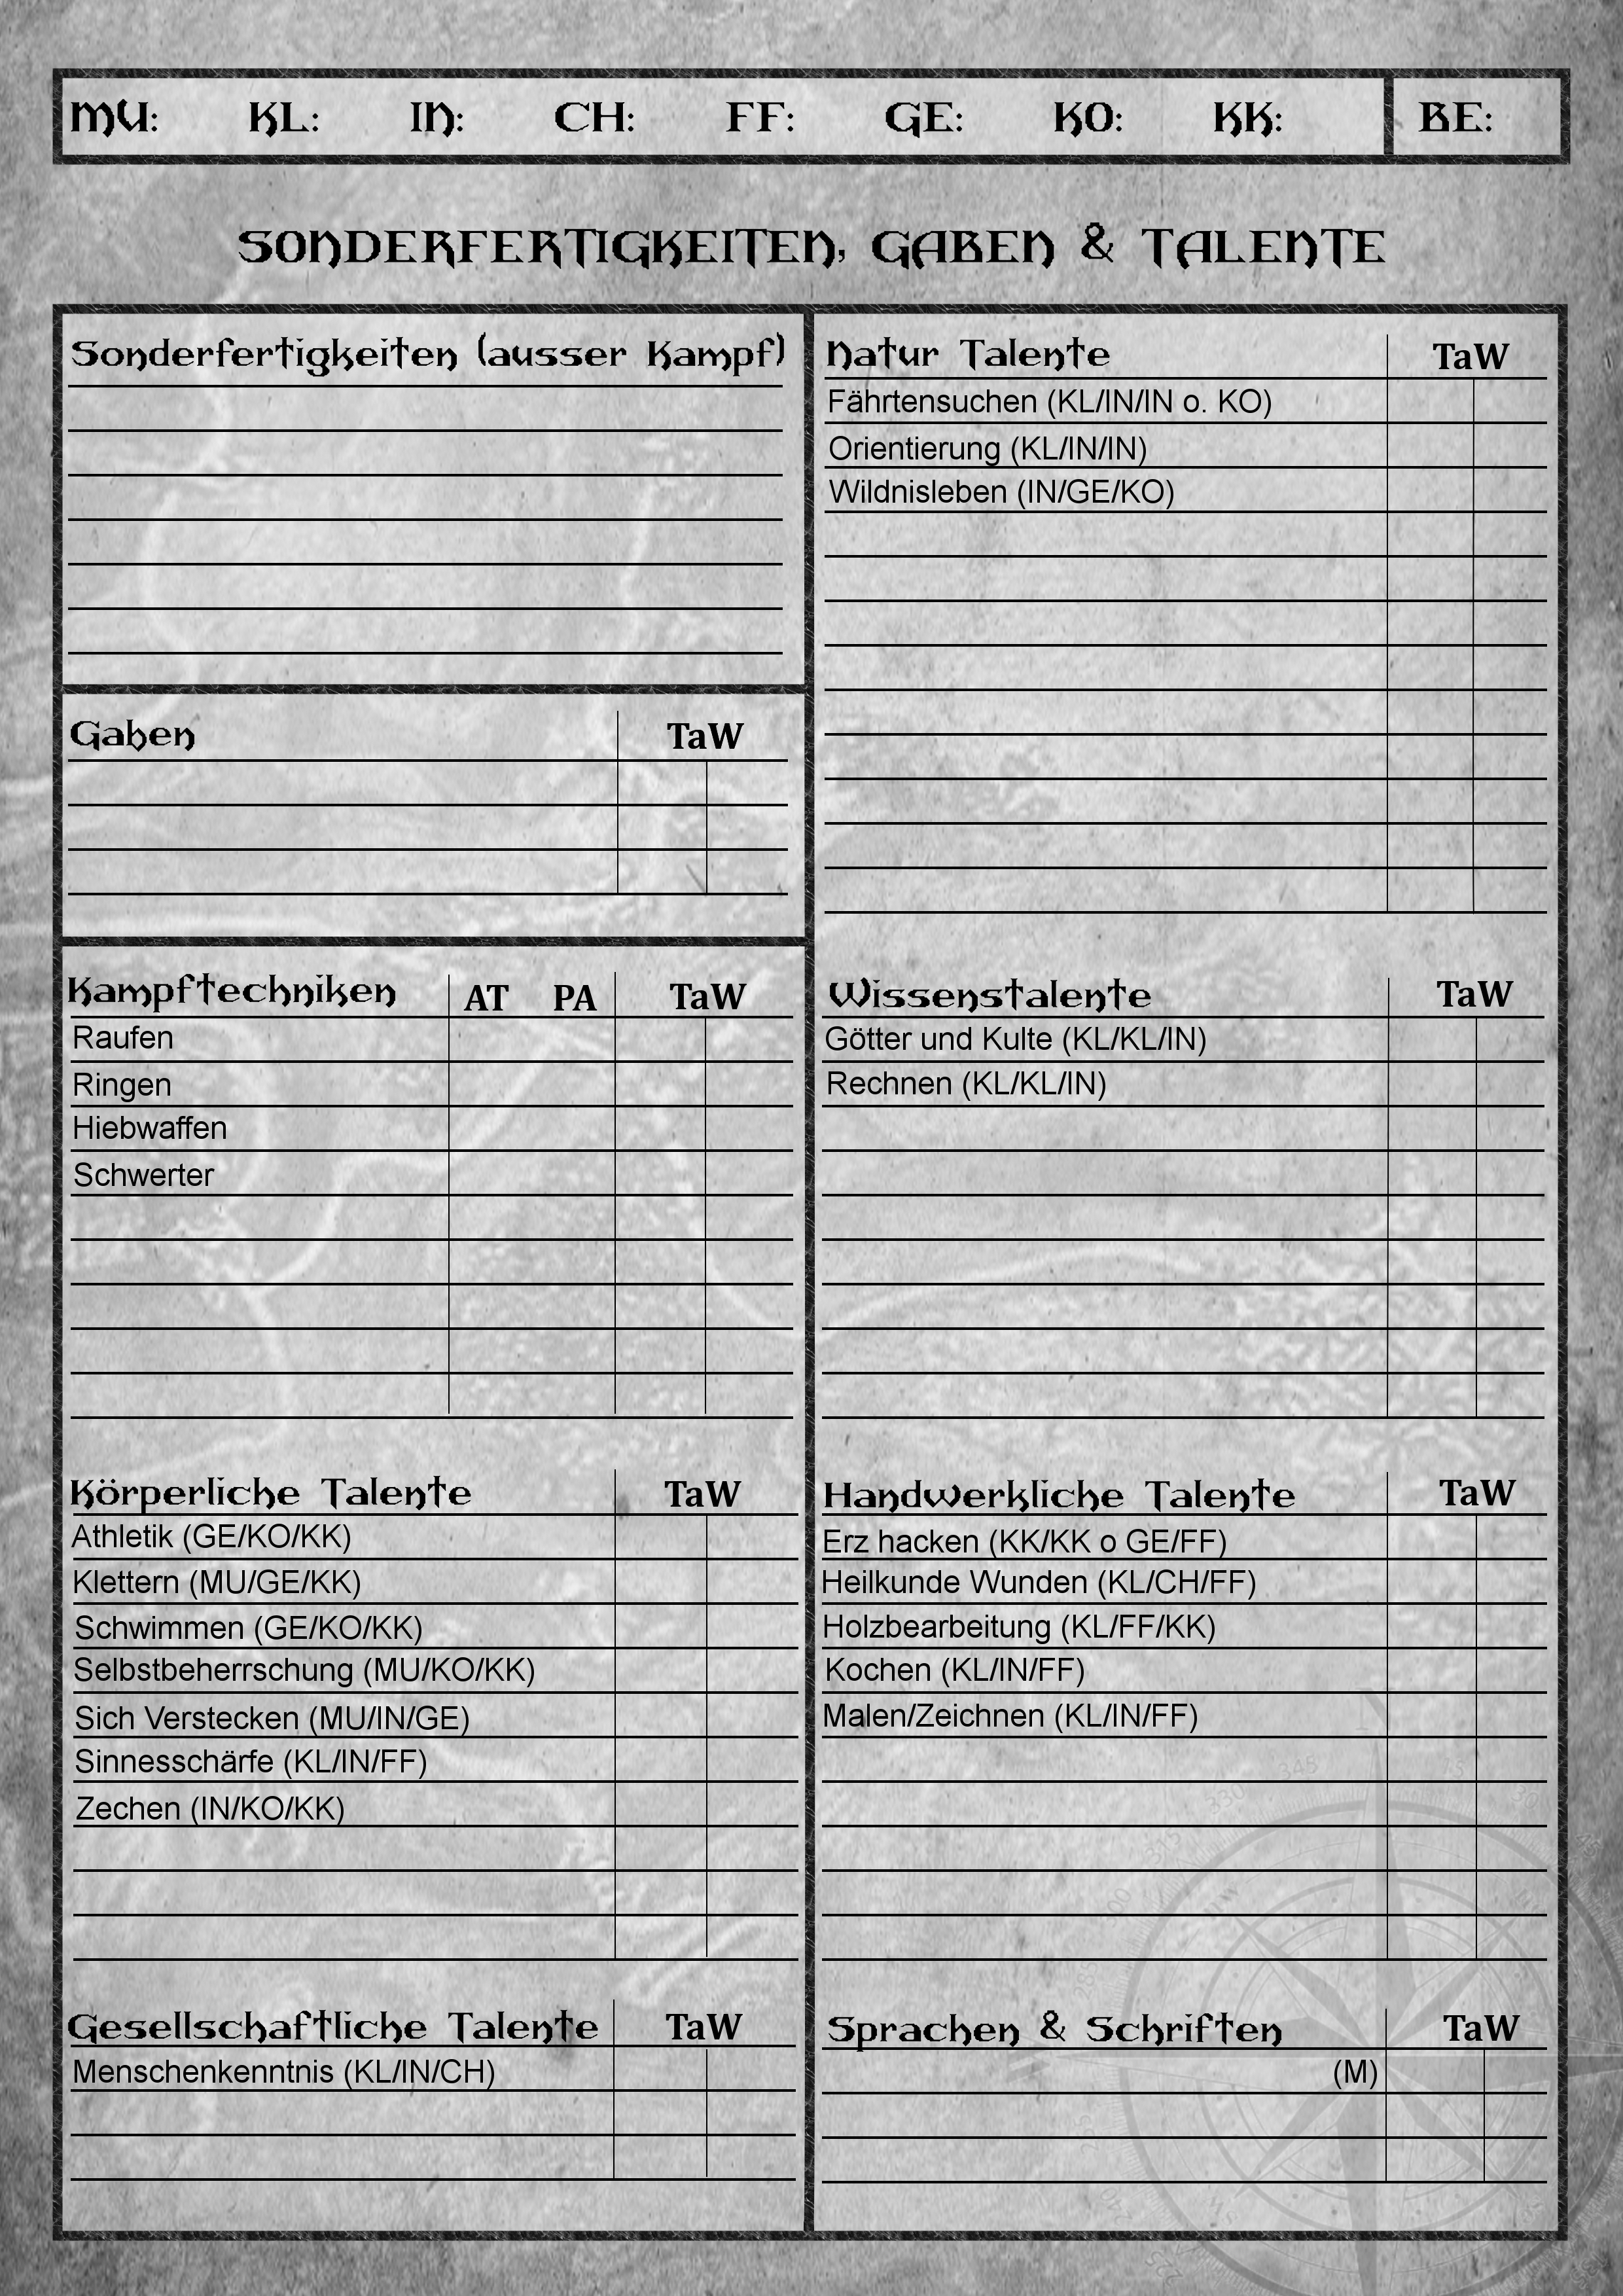 MU: KL: IN: CH: FF: GE: KO: KK: BE:
SONDERFERTIGKEITEN, GABEN & TALENTE
Sonderfertigkeiten (ausser Kampf)
Gaben TaW
Kampftechniken AT PA TaW
Raufen
Ringen
Hiebwaffen
Schwerter
Körperliche Talente TaW
Athletik (GE/KO/KK)
Klettern (MU/GE/KK)
Schwimmen (GE/KO/KK)
Selbstbeherrschung (MU/KO/KK)
Sich Verstecken (MU/IN/GE)
Sinnesschärfe (KL/IN/FF)
Zechen (IN/KO/KK)
Gesellschaftliche Talente TaW
Menschenkenntnis (KL/IN/CH)
Natur Talente TaW
Fährtensuchen (KL/IN/IN o. KO)
Orientierung (KL/IN/IN)
Wildnisleben (IN/GE/KO)
Wissenstalente TaW
Götter und Kulte (KL/KL/IN)
Rechnen (KL/KL/IN)
Handwerkliche Talente TaW
Erz hacken (KK/KK o GE/FF)
Heilkunde Wunden (KL/CH/FF)
Holzbearbeitung (KL/FF/KK)
Kochen (KL/IN/FF)
Malen/Zeichnen (KL/IN/FF)
Sprachen & Schriften TaW
(M)